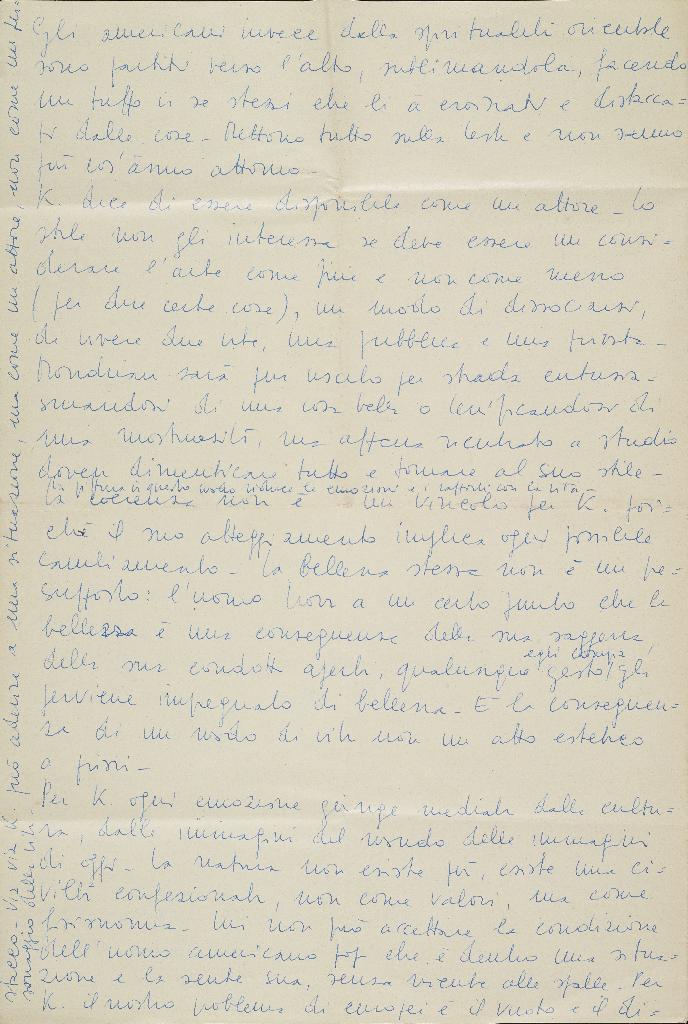 Gli americani invece dalla spiritualità orientale
sono partiti verso l'alto, sublimandola, facendo
un tuffo in se stessi che li à erosnati e distacca-
ti dalle cose. Mettono tutto sulla testa e non sanno
più cos'ànno attorno.
K. dice di essere disponibile come un attore - lo
stile non gli interessa se deve essere un consi-
derare l'arte come fine e non come mezzo
(per dire certe cose), un modo di dissociarsi,
di vivere due vite, una pubblica e una privata.
Mondrian sarà pur uscito per strada entusia-
smandosi di una cosa bella o terrificandosi di
una mostruosità, ma appena rientrato a studio
doveva dimenticare tutto e tornare al suo stile -
in questo modo riduce le emozioni e i rapporti con la vita -
La coerenza non è un vincolo per K. poi-
chè il suo atteggiamento implica ogni possibile
cambiamento. La bellezza stessa non è un pre-
supposto: l'uomo trova a un certo punto che la
bellezza è una conseguenza della sua saggezza
della sua condotta aperta, qualunque gesto egli compia gli
perviene impregnato di bellezza. È la conseguen-
za di un modo di vita non un atto estetico
a priori -
Per K. ogni emozione giunge mediata dalla cultu-
ra, dalle immagini del mondo delle immagini
di oggi. La natura non esiste più, esiste una ci-
viltà confezionata, non come valori, ma come
fisionomia. Lui non può accettare la condizione
dell'uomo americano pop che è dentro una situa-
zione e la sente sua, senza niente alle spalle. Per
K. il nostro problema di europei è il vuoto e il di-
stacco. Via via K. può aderire a una situazione, ma come un attore, non come un